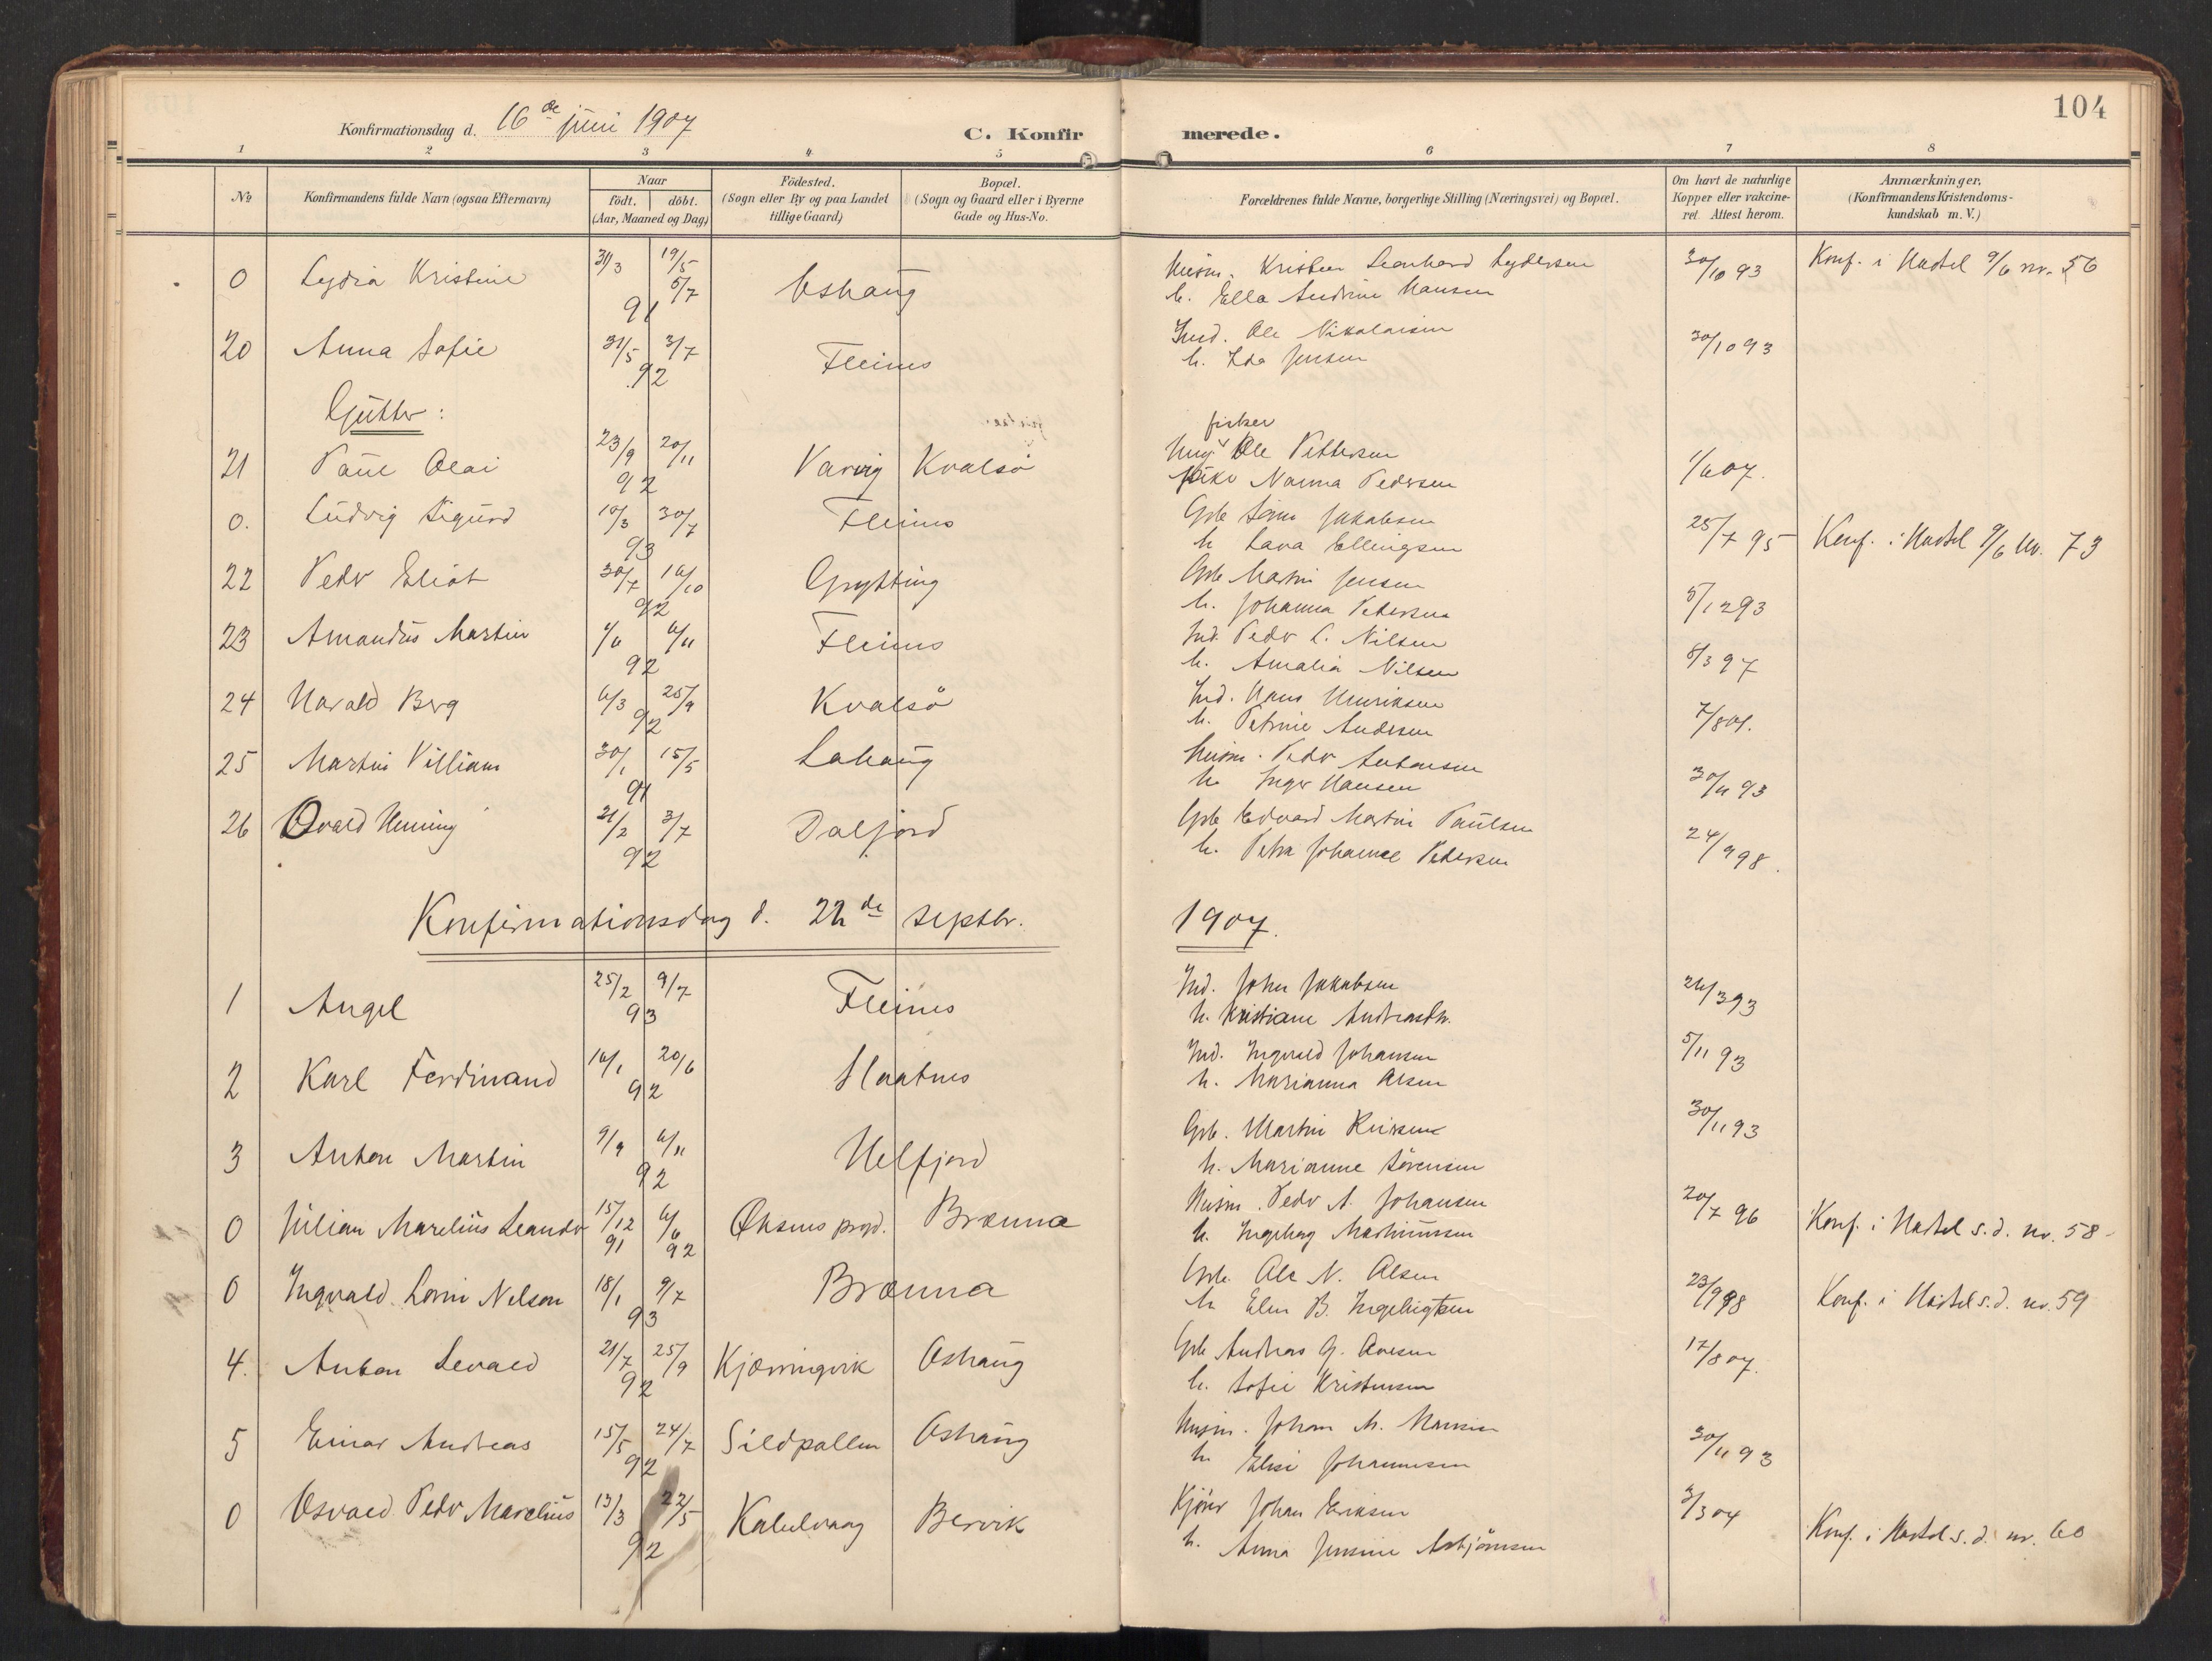 104
Konfirmationsdag d. 16de juni 1907
C. Konfirmerede.
1 2 3 4 5 6 7 8
No
Konfirmandens fulde Navn (ogsaa Efternavn)
Naar
födt. döbt.
(Aar, Maaned og Dag)
Födested.
(Sogn eller By og paa Landet
tillige Gaard)
Bopæl.
(Sogn og Gaard eller i Byerne
Gade og Hus-No.
Forældrenes fulde Navne, borgerlige Stilling (Næringsvei) og Bopæl.
Om havt de naturlige
Kopper eller vakcine-
ret. Attest herom.
Anmærkninger.
(Konfirmandens Kristendoms-
kundskab m. V.)
0 Lydia Kristine 31/3 19/5 5/7 91 Oshaug Husm. Kristen Leonhard Lydersen 30/10 93 Konf. i Hadsel 9/6 nr. 56
h. Ella Andrine Hansen
20 Anna Sofie 31/5 3/7 92 Fleines Ind. Ole Nikolaisen 30/10 93
h. Ida Jensen
Gutter:
fisker
21 Paul Olai 23/9 20/11 92 Varvig Kvalsö Ung. Ole Pettersen 1/6 07.
Pike Nanna Pedersen
0. Ludvig Sigurd 10/3 30/7 93 Fleines Gbr. Sören Jakobsen 25/7 95 Konf. i Hadsel 9/6 Nr. 73
h Lava Ellingsen
22 Peder Eliot 30/7 16/10 92 Grytting Gbr. Martin Jensen 5/12 93
h. Johanna Petersen
23 Amandus Martin 92 Fleines Ind. Peder L. Nilsen 8/3 97
h. Amalia Nilsen
24 Harald Berg 6/3 25/9 92 Kvalsö Ind. Hans Henriksen 7/8 01.
h. Petrine Andersen
25 Martin Villiam 30/1 15/5 91 Lahaug Husm. Peder Antonsen 30/11 93
h. Inger Hansen
26 Osvald Henning 21/2 3/7 92 Daljord Gbr Edvard Martin Paulsen 24/9 98.
h. Petra Johanna Petersen
Konfirmationsdag d. 22de septbr. 1907.
1 Angel 25/2 9/7 93 Fleines Ind. John Jakobsen 26/3 93
h. Kristiane Andreasdtr.
2 Karl Ferdinand 16/1 20/6 92 Haatnes Ind. Ingvald Johansen 5/11 93
h. Marianna Olsen
3 Anton Martin 9/9 6/11 92 Helfjord Gbr. Martin 30/11 93
h. Marianne Sörensen
0 Julian Marelius Leander 15/12 91 6/6 92 Øksnes prgd. Brænna Husm. Peder A. Johansen 20/7 96 Konf. i Hadsel s. d. nr. 58
h. Ingeborg
0 Ingvald Lorin Nelson 18/1 9/7 93 Brænna Gbr. Ole N. Olsen 23/9 98 Konf. i Hadsel s. d. nr. 59
h Elen B. Ingebrigtsen
4. Anton Sevald 21/7 25/9 92 Kjørringvik Oshaug Gbr Andreas G. 17/8 07.
h. Sofie Kristensen
5 Einar Andreas 15/5 24/7 92 Sildpollen Oshaug Husm. Johan M. Hansen 30/11 93
h. Elise Johannesen
0 Osvald Peder Marelius 13/3 22/5 92 Kabelvaag Bervik Johan Eriksen 3/3 04 Konf. i Hadsel s. d. nr. 60
h. Anna Jensine Asbjörnsen